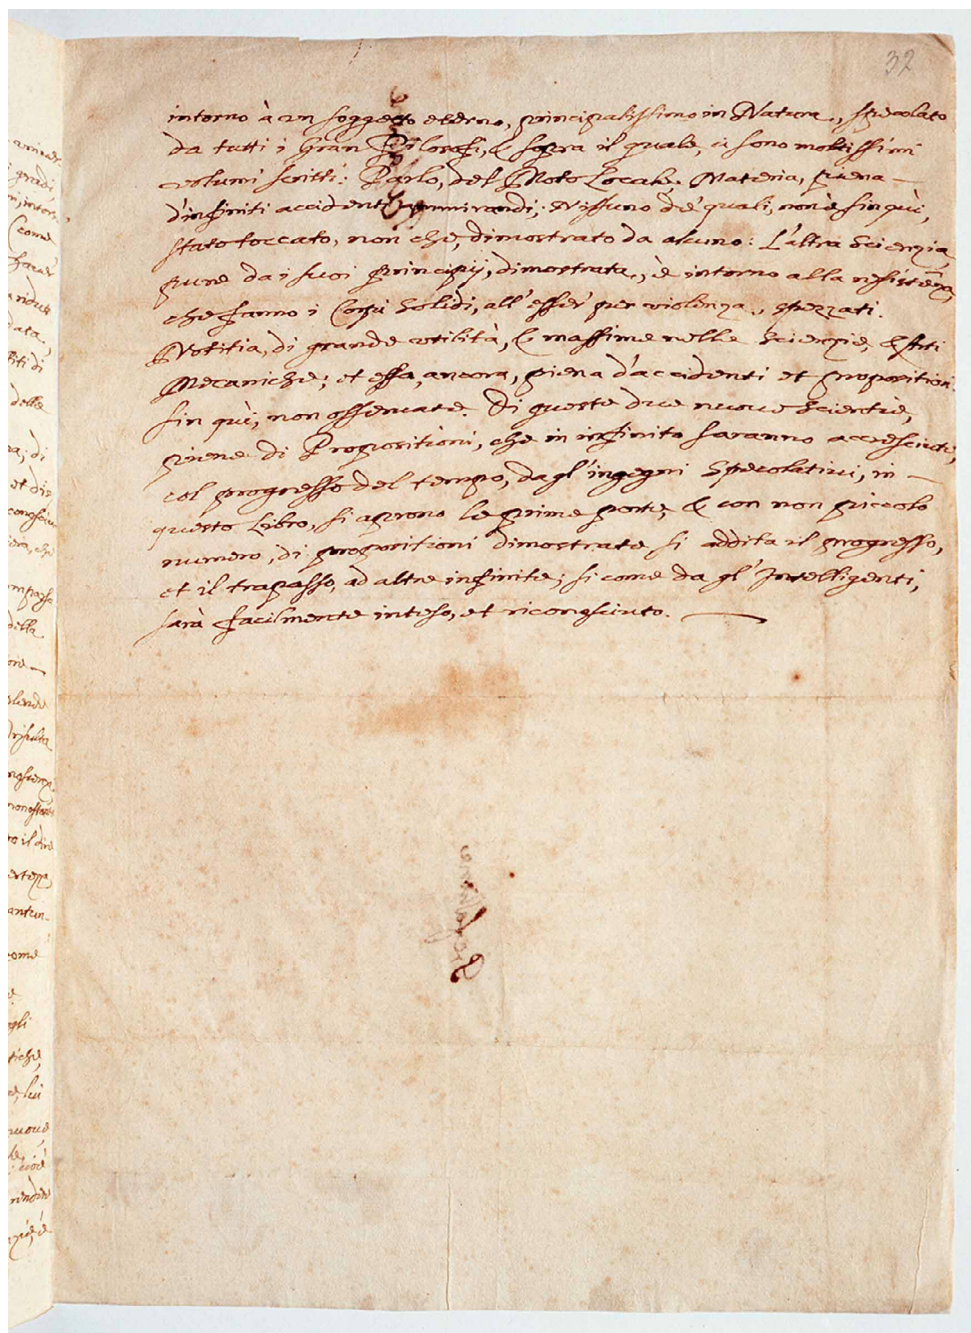 32
intorno à un soggetto eterno, principalissimo in Natura, specolato
da tutti i Gran Filosofi, & sopra il quale, ci sono moltissimi
volumi scritti: Parlo, del Moto Locale. Materia, piena
d'infiniti accidenti ammirandi; Nissuno de' quali, non è sin quì,
stato toccato, non che, dimostrato da alcuno: L'altra Scienzia,
pure da i suoi principij, dimostrata, è intorno alla resistenza,
che fanno i Corpi Solidi, all'esser' per violenza, spezzati.
Notitia, di grande utilità, & massime nelle Scienzie, & Arti
Mecaniche; et essa, ancora, piena d'accidenti et propositioni
sin quì, non osservate. Di queste due nuove Scientie,
piene di Propositioni, che in infinito saranno accresciute,
col progresso del tempo, dagl'ingegni Specolativi, in
questo Libro, si aprono le prime porte, & con non piccolo
numero, di propositioni dimostrate si addita il progresso,
et il trapasso, ad altre infinite; si come da gl'Intelligenti,
sarà facilmente inteso, et riconosciuto.